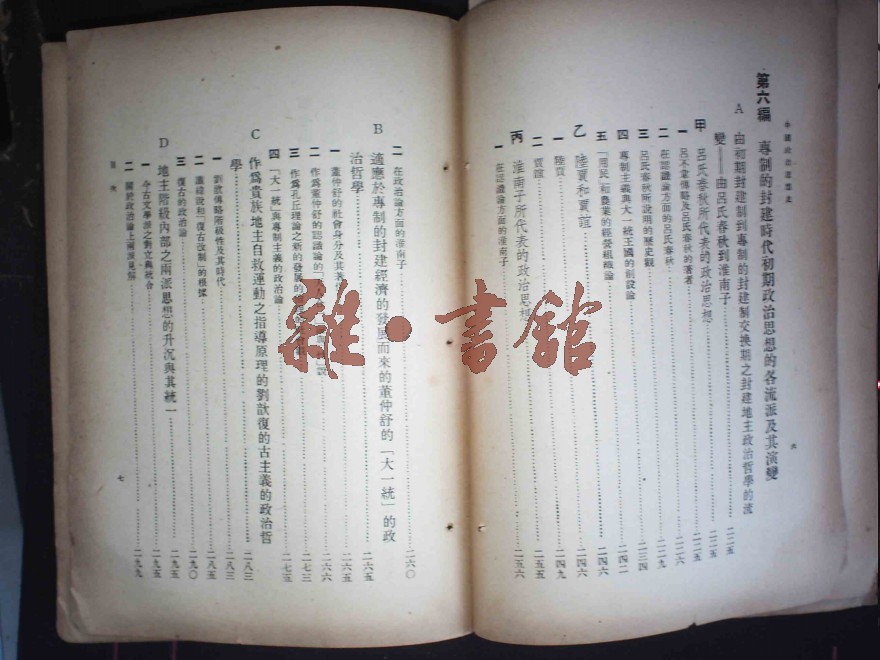 中國政治思想史
第六編　專制的封建時代初期政治思想的各流派及其演變
A　由初期封建制到專制的封建制交換期之封建地主政治哲學的流
變——由呂氏春秋到淮南子……二二五
甲　呂氏春秋所代表的政治思想……二二五
一　呂不韋傳略及呂氏春秋的著者……二二六
二　在認識論方面的呂氏春秋……二二九
三　呂氏春秋所說明的歷史觀……二三四
四　專制主義與大一統王國的創設論……二四二
五　「用民」和農業的經營組織論……二四六
乙　陸賈和賈誼……二四六
一　陸賈……二四九
二　賈誼……二五五
丙　淮南子所代表的政治思想……二五六
一　在認識論方面的淮南子
六
二　在政治論方面的淮南子……二六〇
B　適應於專制的封建經濟的發展而來的董仲舒的「大一統」的政
治哲學……二六五
一　董仲舒的社會身分及其著……二六五
二　作為董仲舒的認識論的「……二六六
三　作為孔丘理論之新的發展的……二七三
四　「大一統」與專制主義的政治論……二七五
C　作爲貴族地主自救運動之指導原理的劉歆復的古主義的政治哲
學……二八三
一　劉歆傳略階級性及其時代……二八三
二　讖緯說和「復古改制」的根據……二八五
三　復古的政治論……二九〇
D　地主階級內部之兩派思想的升沉與其統一……二九五
一　今古文學派之對立與統合……二九五
二　關於政治論上兩派見解……二九九
目次
七
雜·書館